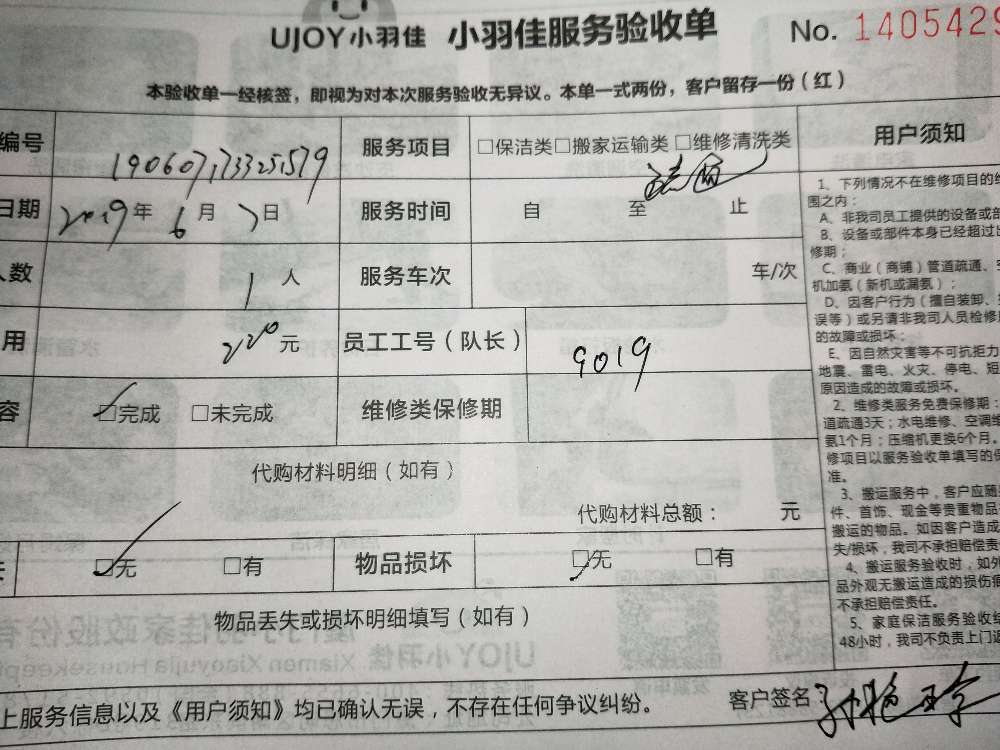 UJOY小羽佳 小羽佳服务验收单 No. 1405429
本验收单一经核签，即视为对本次服务验收无异议。本单一式两份，客户留存一份（红）
编号 190607173325579 服务项目 □保洁类□搬家运输类□维修清洗类 用户须知
日期 2019年 6月 7日 服务时间 自 至 止
人数 1人 服务车次 车/次
用 220元 员工工号（队长） 9019
容 □完成 □未完成 维修类保修期
代购材料明细（如有）
代购材料总额： 元
□无 □有 物品损坏 □无 □有
物品丢失或损坏明细填写（如有）
上服务信息以及《用户须知》均已确认无误，不存在任何争议纠纷。 客户签名
1、下列情况不在维修项目的
围之内：
A、非我司员工提供的设备或部
B、设备或部件本身已经超过
修期；
C、商业（商铺）管道疏通、
机加氨（新机或漏氨）；
D、因客户行为（擅自装卸、
误等）或另请非我司人员检修
的故障或损坏；
E、因自然灾害等不可抗拒力
地震、雷电、火灾、停电、短
原因造成的故障或损坏。
2、维修类服务免费保修期：
道疏通3天；水电维修、空调维
氨1个月；压缩机更换6个月。
修项目以服务验收单填写的
准。
3、搬运服务中，客户应随
件、首饰、现金等贵重物品
搬运的物品。如因客户造成
失/损坏，我司不承担赔偿责
4、搬运服务验收时，如外
品外观无搬运造成的损伤
不承担赔偿责任。
5、家庭保洁服务验收
48小时，我司不负责上门返